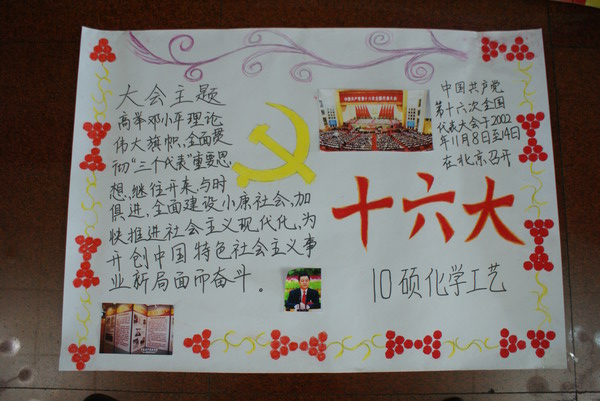 大会主题
高举邓小平理论
伟大旗帜,全面贯
彻"三个代表"重要思
想,继往开来,与时
俱进,全面建设小康社会,加
快推进社会主义现代化,为
开创中国特色社会主义事
业新局面而奋斗。
中国共产党
第十六次全国
代表大会于2002
年11月8日至14日
在北京召开
十六大
10硕化学工艺